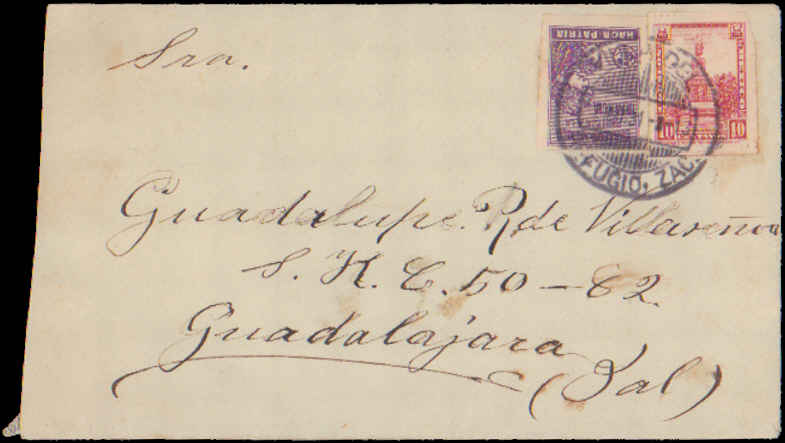 Sra.
HACE PATRIA
10 10
FUGIO, ZAC.
Guadalupe. R. de Villaseñor
S. H. C. 50-62.
Guadalajara
(Jal)